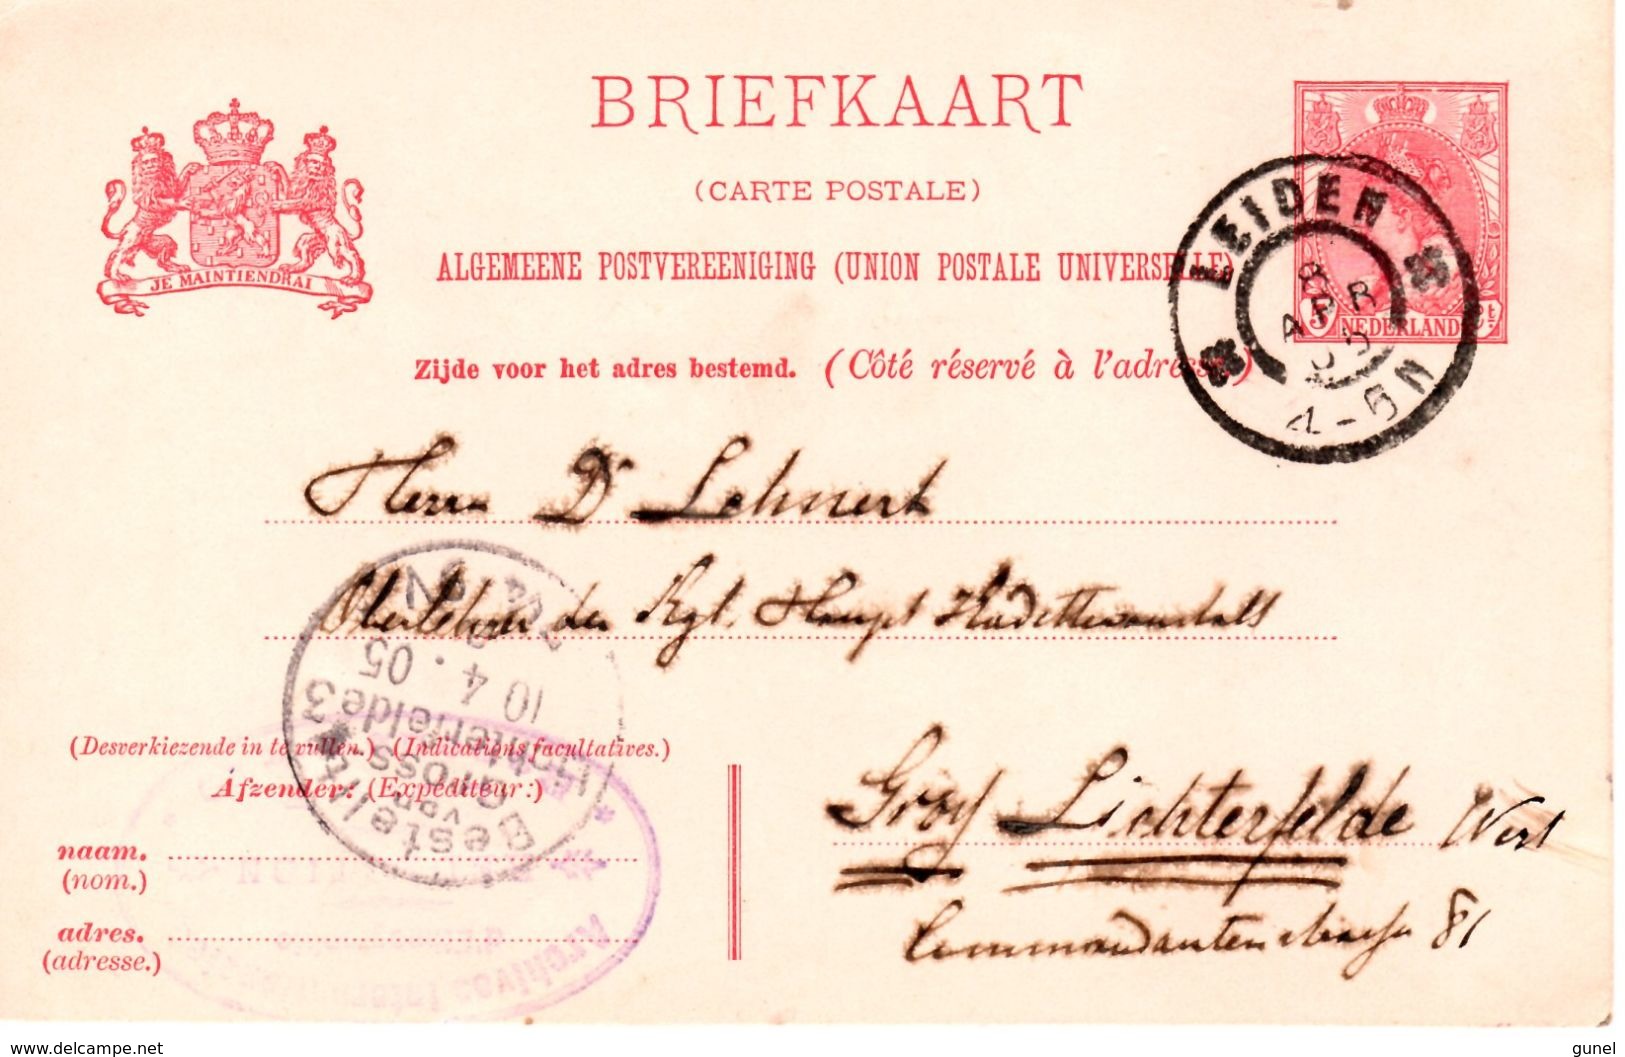 BRIEFKAART
(CARTE POSTALE)
JE MAINTIENDRAI
ALGEMEENE POSTVEREENIGING (UNION POSTALE UNIVERSELLE)
Zijde voor het adres bestemd. (Côté réservé à l'adresse.)
LEIDEN
8 APR 05
4-5N
NEDERLAND
Herrn Dr Lehnert
Oberlehrer der Kgl. Haupt Kadettenanstalt
Gross Lichterfelde West
Commandantenstrasse 81
Bestellt
vom
Gross
Lichterfelde 3
10 4. 05
(Desverkiezende in te vullen.) (Indications facultatives.)
Afzender: (Expéditeur:)
naam.
(nom.)
adres.
(adresse.)
Archives Internat
www.delcampe.net
gunel